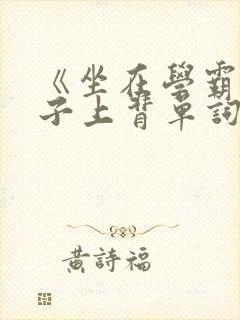 《坐在學霸
子上背單詞
黃詩福